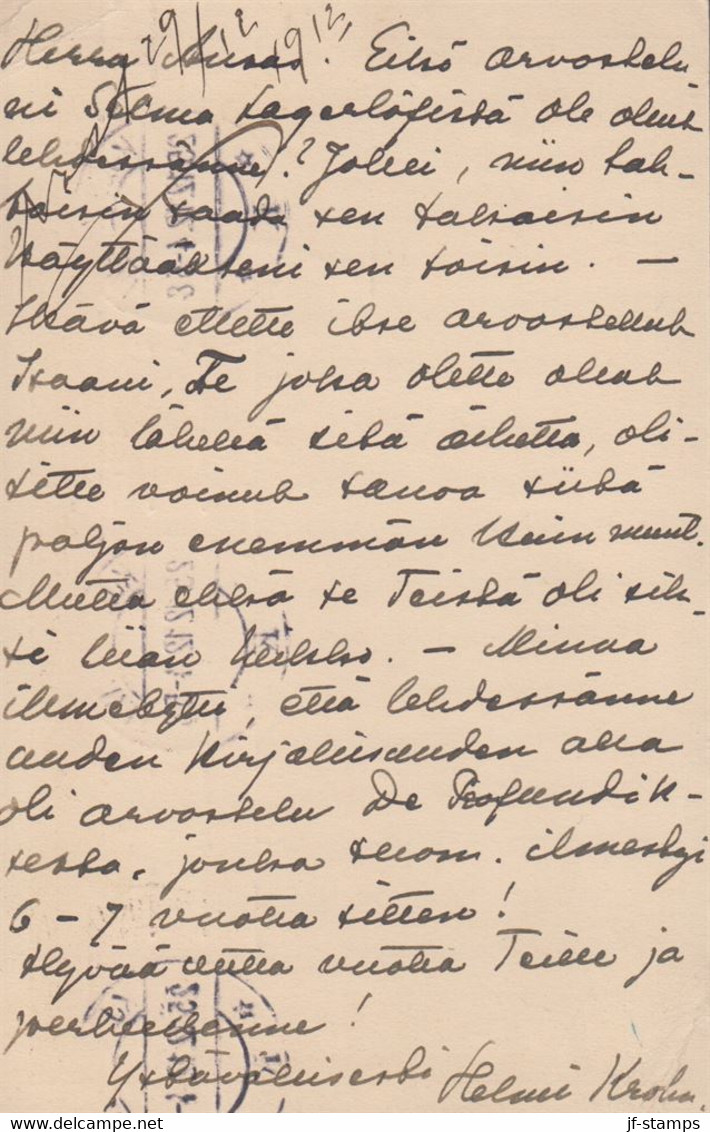 29/12 1912.
Herra . Eikö arvostelu-
ni Selma Lagerlöfistä ole ollut
lehdessänne? Jollei, niin tah-
toisin saada sen takaisin
käyttääkseni sen toisin. —
Ikävä ettette itse arvostellut
Isääni, Te joka olette ollut
niin lähellä sitä aihetta, oli-
sitte voinut sanoa siitä
paljon enemmän kuin muut.
Mutta ehkä se Teistä oli sik-
si liian . — Minua
ihmetytti, että lehdessänne
uuden kirjallisuuden alla
oli arvostelu De Profundik-
sesta, jonka suom. ilmestyi
6–7 vuotta sitten!
Hyvää uutta vuotta Teille ja
perheellenne!
Ystävällisesti Helmi Krohn.
jf-stamps